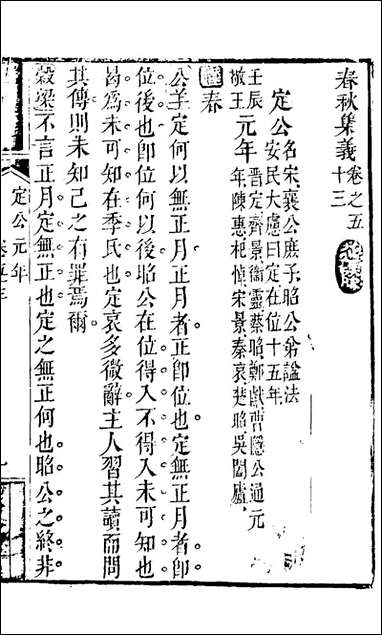 春秋集義卷之五十三
定公名宋襄公庶子昭公弟諡法
安民大慮曰定在位十五年
壬辰敬王元年晉定齊景衞靈蔡昭鄭獻曹隱公通元
年陳惠杞悼宋景秦哀楚昭吳闔廬
經春
公羊定何以無正月正月者正即位也定無正月者即
位後也即位何以後昭公在位得入不得入未可知也
曷為未可知在季氏也定哀多微辭主人習其讀而問
其傳則未知己之有罪焉爾
穀梁不言正月定無正也定之無正何也昭公之終非
定公元年
卷五十三